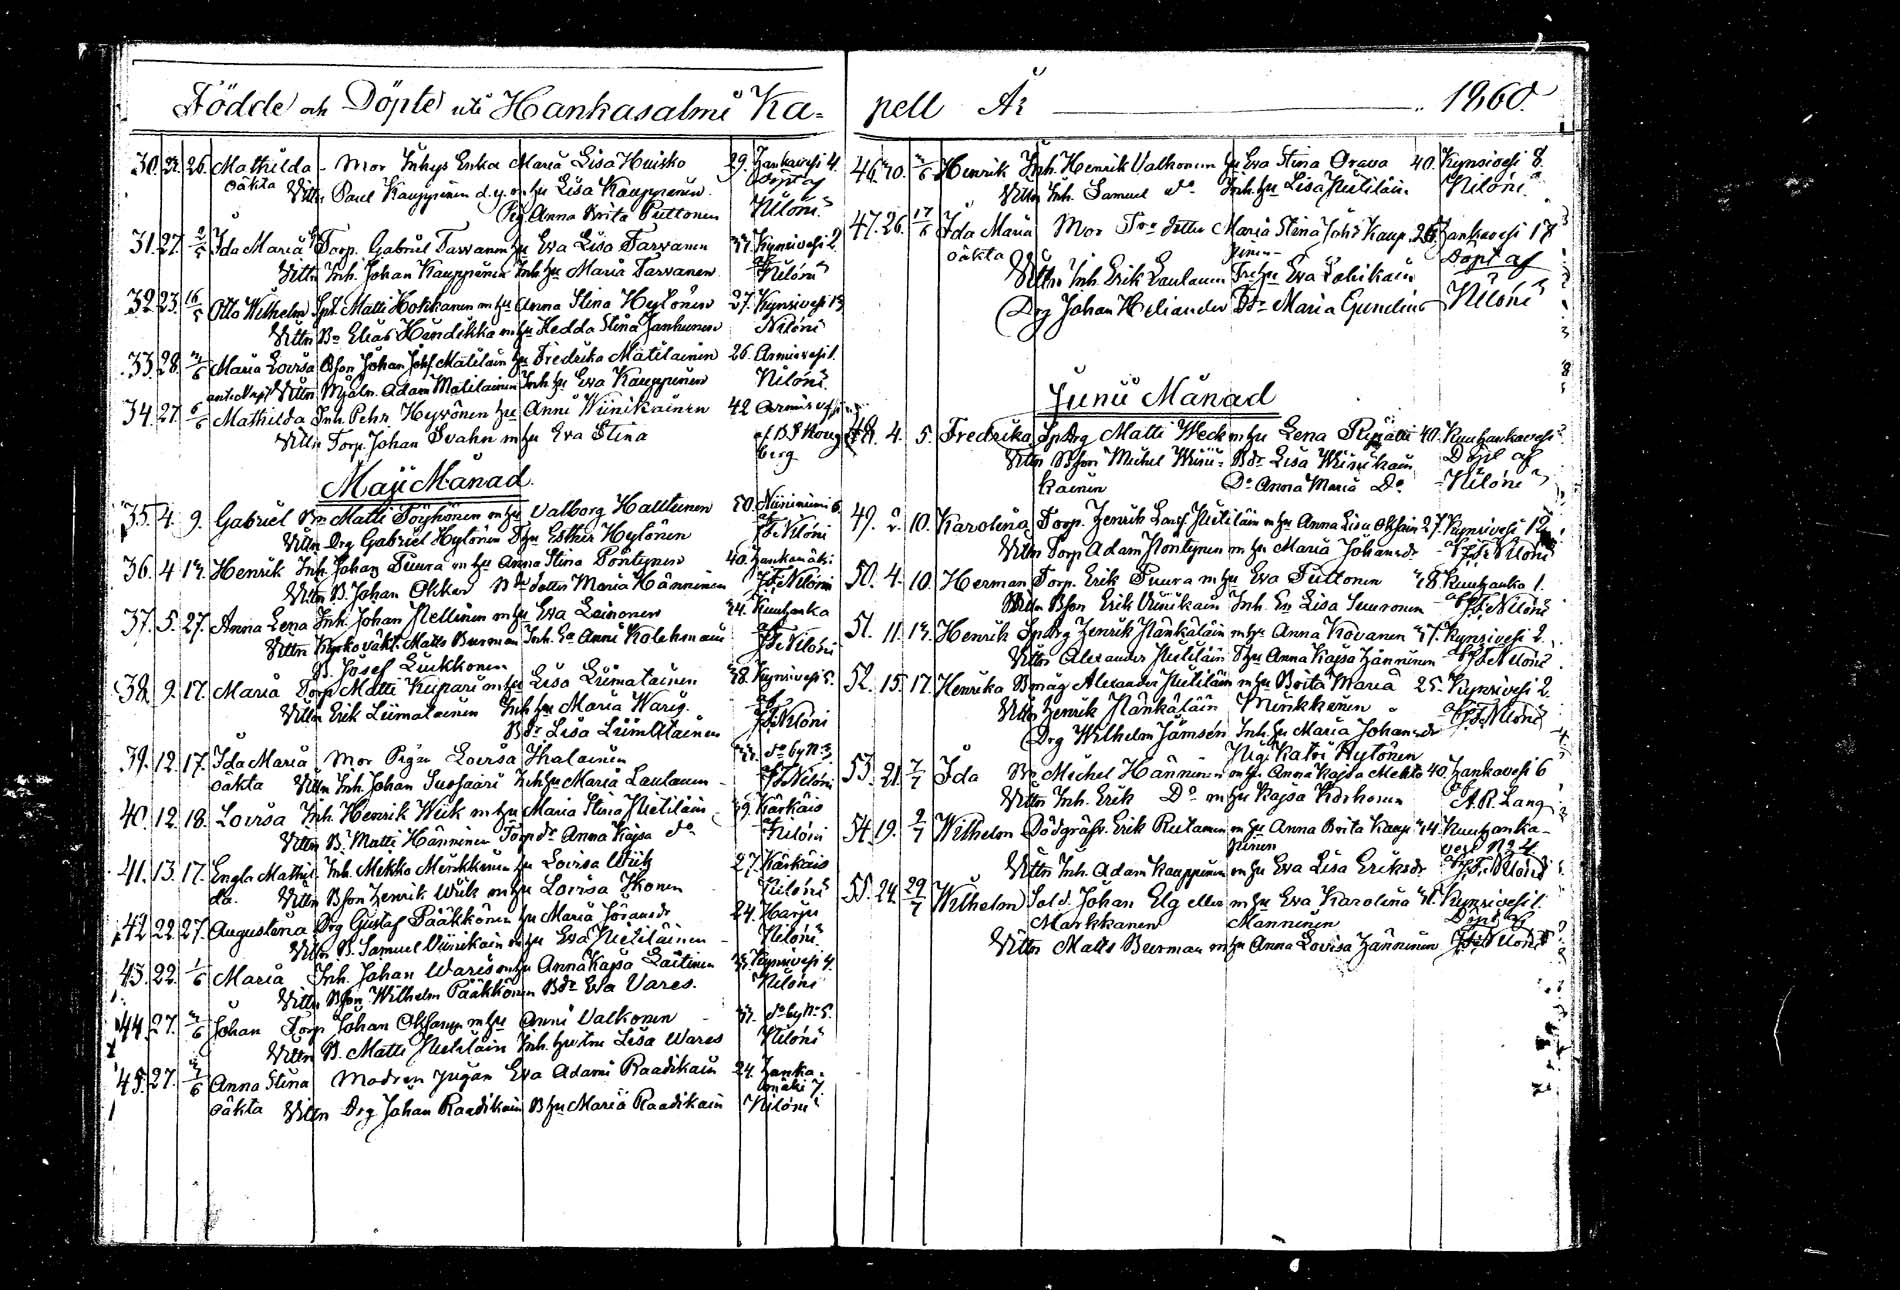 Födde och Döpte uti Hankasalmi Ka=
30. 26. Mathilda - Mor Inhys Enka Maria Lisa Huisko 29. Hankavesi 4.
oäkta Vittn Paul Kauppinen d.y. m hu Lisa Kauppinen Döpt af
Pig. Anna Brita Puttonen Niloni
31. 27. 2/5 Ida Maria Torp. Gabriel Tarvanen hu Eva Lisa Tarvanen Kynsivesi 2.
Vittn Inh. Johan Kauppinen Inh hu Maria Tarvanen af Niloni
32. 23. 16/5 Otto Wilhelm Spt. Matti Hokkanen m hu Anna Stina Hytönen 27. Kynsivesi 13
Vittn Bo Elias m hu Hedda Stina Janhunen Niloni
33. 28. Maria Lovisa Bson Johan Matilain hu Fredrika Matilainen 26. Armisvesi 1.
Vittn Mjöln. Adam Matilainen Inh. hu Eva Kauppinen Niloni
34. 27. 6/6 Mathilda Inh. Pehr Hyvönen hu Anni Wiinikainen 42 Armisvesi
Vittn Torp. Johan Svahn m hu Eva Stina
berg
Maji Månad.
35. 4. 9. Gabriel Bo Matti Töyhönen m hu Valborg Halttunen 20. Niinimäni 6.
Vittn Drg Gabriel Hytönen hu Esther Hytönen Niloni
36. 4 13. Henrik Inh. Johan Tuura m hu Anna Stina Pöntynen 40. Hankamäki
Vittn B. Johan Okker Bo dotter Maria Hänninen Niloni
37. 5. 27. Anna Lena Inh. Johan Nellinen m hu Eva Leinonen 24. Kuuhanka
Vittn Kyrkovakt. Matts Burman Inh. Ea Anni Kolehmain Niloni
B. Josef Liukkonen
38. 9. 17. Maria Torp Matti Kupari m hu Lisa Liimatainen 28. Kynsivesi 5.
Vittn Erik Liimatainen Inh hu Maria Waris. af
Bdr Lisa Liimatainen Niloni
39. 12. 17. Ida Maria Mor Pigan Lovisa Ihalainen do by No 3
oäkta Vittn Inh. Johan Susjaari Inh hu Maria Lautanen Niloni
40. 12. 18. Lovisa Inh. Henrik Wiik m hu Maria Stina Nietiläin 29. Kärkäis
Vittn B. Matti Hänninen Torp dr Anna Kajsa do Niloni
41. 13. 17. Engla Mathil Inh. Mikko Minkkinen hu Lovisa Wiik 27. Kärkäis
da. Vittn Bson Henrik Wiik m hu Lovisa Ikonen Niloni
42 22. 27. Augustina Drg Gustaf Pääkkönen hu Maria Göransdr 24. Harju
Vittn B. Samuel Viinikain m hu Eva Nietiläinen Niloni
43. 22. 1/6 Maria Inh. Johan Waris m hu Anna Kajsa Laitinen Kynsivesi 4.
Vittn Bson Wilhelm Pääkkönen Bdr Eva Vares. Niloni
44. 27. Johan Torp Johan m hu Anni Valkonen do by No 5.
Vittn B. Matti Nietiläin Inh. hustru Lisa Wares Niloni
45. 27. Anna Stina Modren pigan Eva Adami Raatikain 24. Hanka-
mäki 7.
oäkta Vittn Drg Johan Raatikain B hu Maria Raatikain Niloni
pell År 1860.
46. Henrik Inh. Henrik Valkonen hu Eva Stina Orava 40. Kynsivesi 8.
Vittn Inh. Samuel do Inh. hu Lisa Nietiläin Niloni
47. 26. 17/6 Ida Maria Mor Tro dotter Maria Stina Johs Kaup- 26. Hankavesi 17
oäkta pinen Döpt af
Vittn Inh. Erik Lautanen Eva
Drg Johan Heliander Bdr Maria Gundius Niloni
Junii Månad
48. 4. 5. Fredrika Sp Drg Matti Weck m hu Lena 40. Kuuhankavesi
Vittn Bson Michel Wiini- Bdr Lisa Wiinikain Döpt af
kainen Do Anna Maria Do Niloni
49. 2. 10. Karolina Torp. Henrik Nietiläin m hu Anna Lisa 27. Kynsivesi 12
Vittn Torp Adam Pöntynen m hu Maria Johansdr Niloni
50. 4. 10. Herman Torp. Erik Tuura m hu Eva Tuttonen 28. Kuuhanka 1.
Vittn Bson Erik Viinikain Inh. En Lisa Suuronen Niloni
51. 11. 13. Henrik Sp Drg Henrik Pänkäläin m hu Anna Kovanen Kynsivesi 2.
Vittn Alexander Nietiläin hu Anna Kajsa Hänninen Niloni
52. 15. 17. Henrika Bmåg Alexander Nietiläin m hu Brita Maria 25. Kynsivesi 2.
Vittn Henrik Pänkäläin Minkkinen Niloni
Drg Wilhelm Jämsén Inh. hu Maria Johansdr
Pig. Katri Hytönen
53. 21. 7/7 Ida Bo Michel Hänninen m hu Anna Kajsa Mehto 40. Hankavesi 6
Vittn Inh. Erik Do m hu Kajsa Korhonen A. R. Lang
54. 19. 2/7 Wilhelm Dödgräfv. Erik Rutanen m hu Anna Brita Kaup- Kuuhanka-
pinen vesi No 4.
Vittn Inh. Adam Kauppinen m hu Eva Lisa Eriksdr Niloni
55. 24. 29/7 Wilhelm Sold. Johan Elg eller m hu Eva Karolina Kynsivesi 1.
Markkanen Manninen Döpt af
Vittn Matts Burman m hu Anna Lovisa Hänninen Niloni